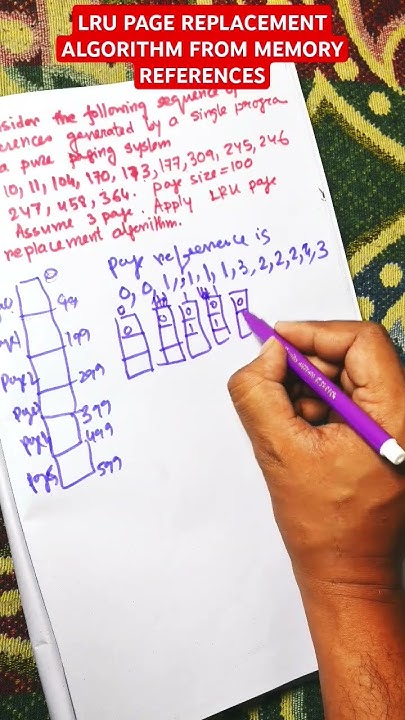 LRU PAGE REPLACEMENT
ALGORITHM FROM MEMORY
REFERENCES
the following sequence of
generated by a single
a pure paging system
10, 11, 104, 170, 173, 177, 309, 245, 246
247, 458, 364. page size=100
Assume 3 page. Apply LRU page
replacement algorithm.
page reference is
0, 0, 1, 1, 1, 1, 3, 2, 2, 2, 4, 3
0
99
199
299
399
499
599
0
0
0
1
0
1
0
1
0